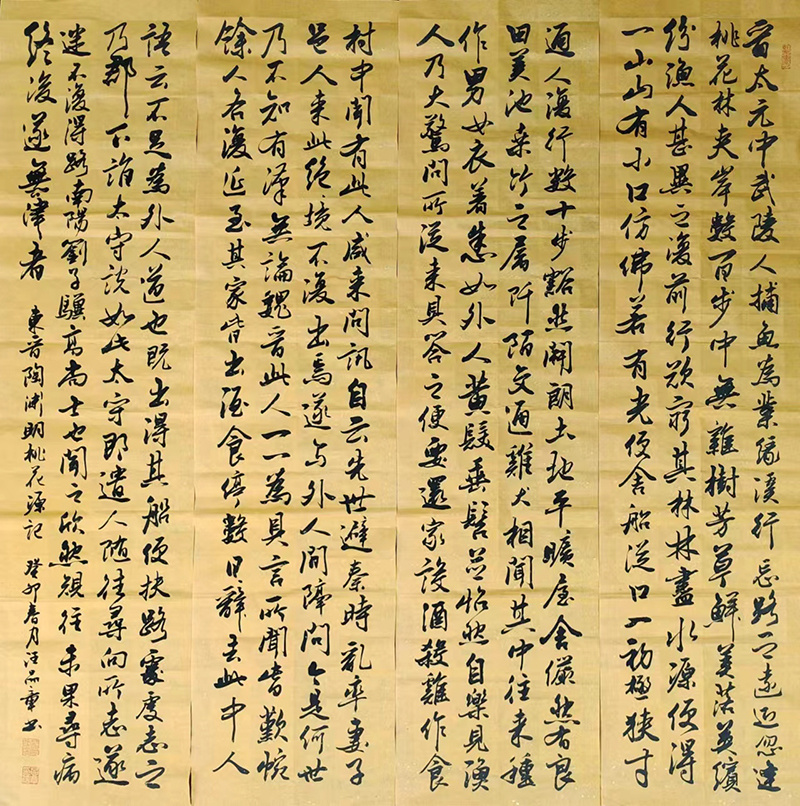 晋太元中武陵人捕魚為業缘溪行忘路之遠近忽逢
桃花林夹岸數百步中無雜樹芳草鮮美落英繽
纷漁人甚異之復前行欲窮其林林盡水源便得
一山山有小口仿佛若有光便舍船從口入初極狹才
通人復行數十步豁然開朗土地平曠屋舍儼然有良
田美池桑竹之屬阡陌交通雞犬相聞其中往来種
作男女衣着悉如外人黄髮垂髫並怡然自樂見漁
人乃大驚問所從来具答之便要還家設酒殺雞作食
村中聞有此人咸来問訊自云先世避秦時亂率妻子
邑人来此絕境不復出焉遂与外人間隔問今是何世
乃不知有漢無論魏晋此人一一為具言所聞皆歎惋
餘人各復延至其家皆出酒食停數日辭去此中人
語云不足為外人道也既出得其船便扶路處處志之
及郡下詣太守説如此太守即遣人随往尋向所志遂
迷不復得路南陽劉子驥高尚士也聞之欣然規往未果尋病
終後遂無津者 東晋陶渊明桃花源記 癸卯春月汪书